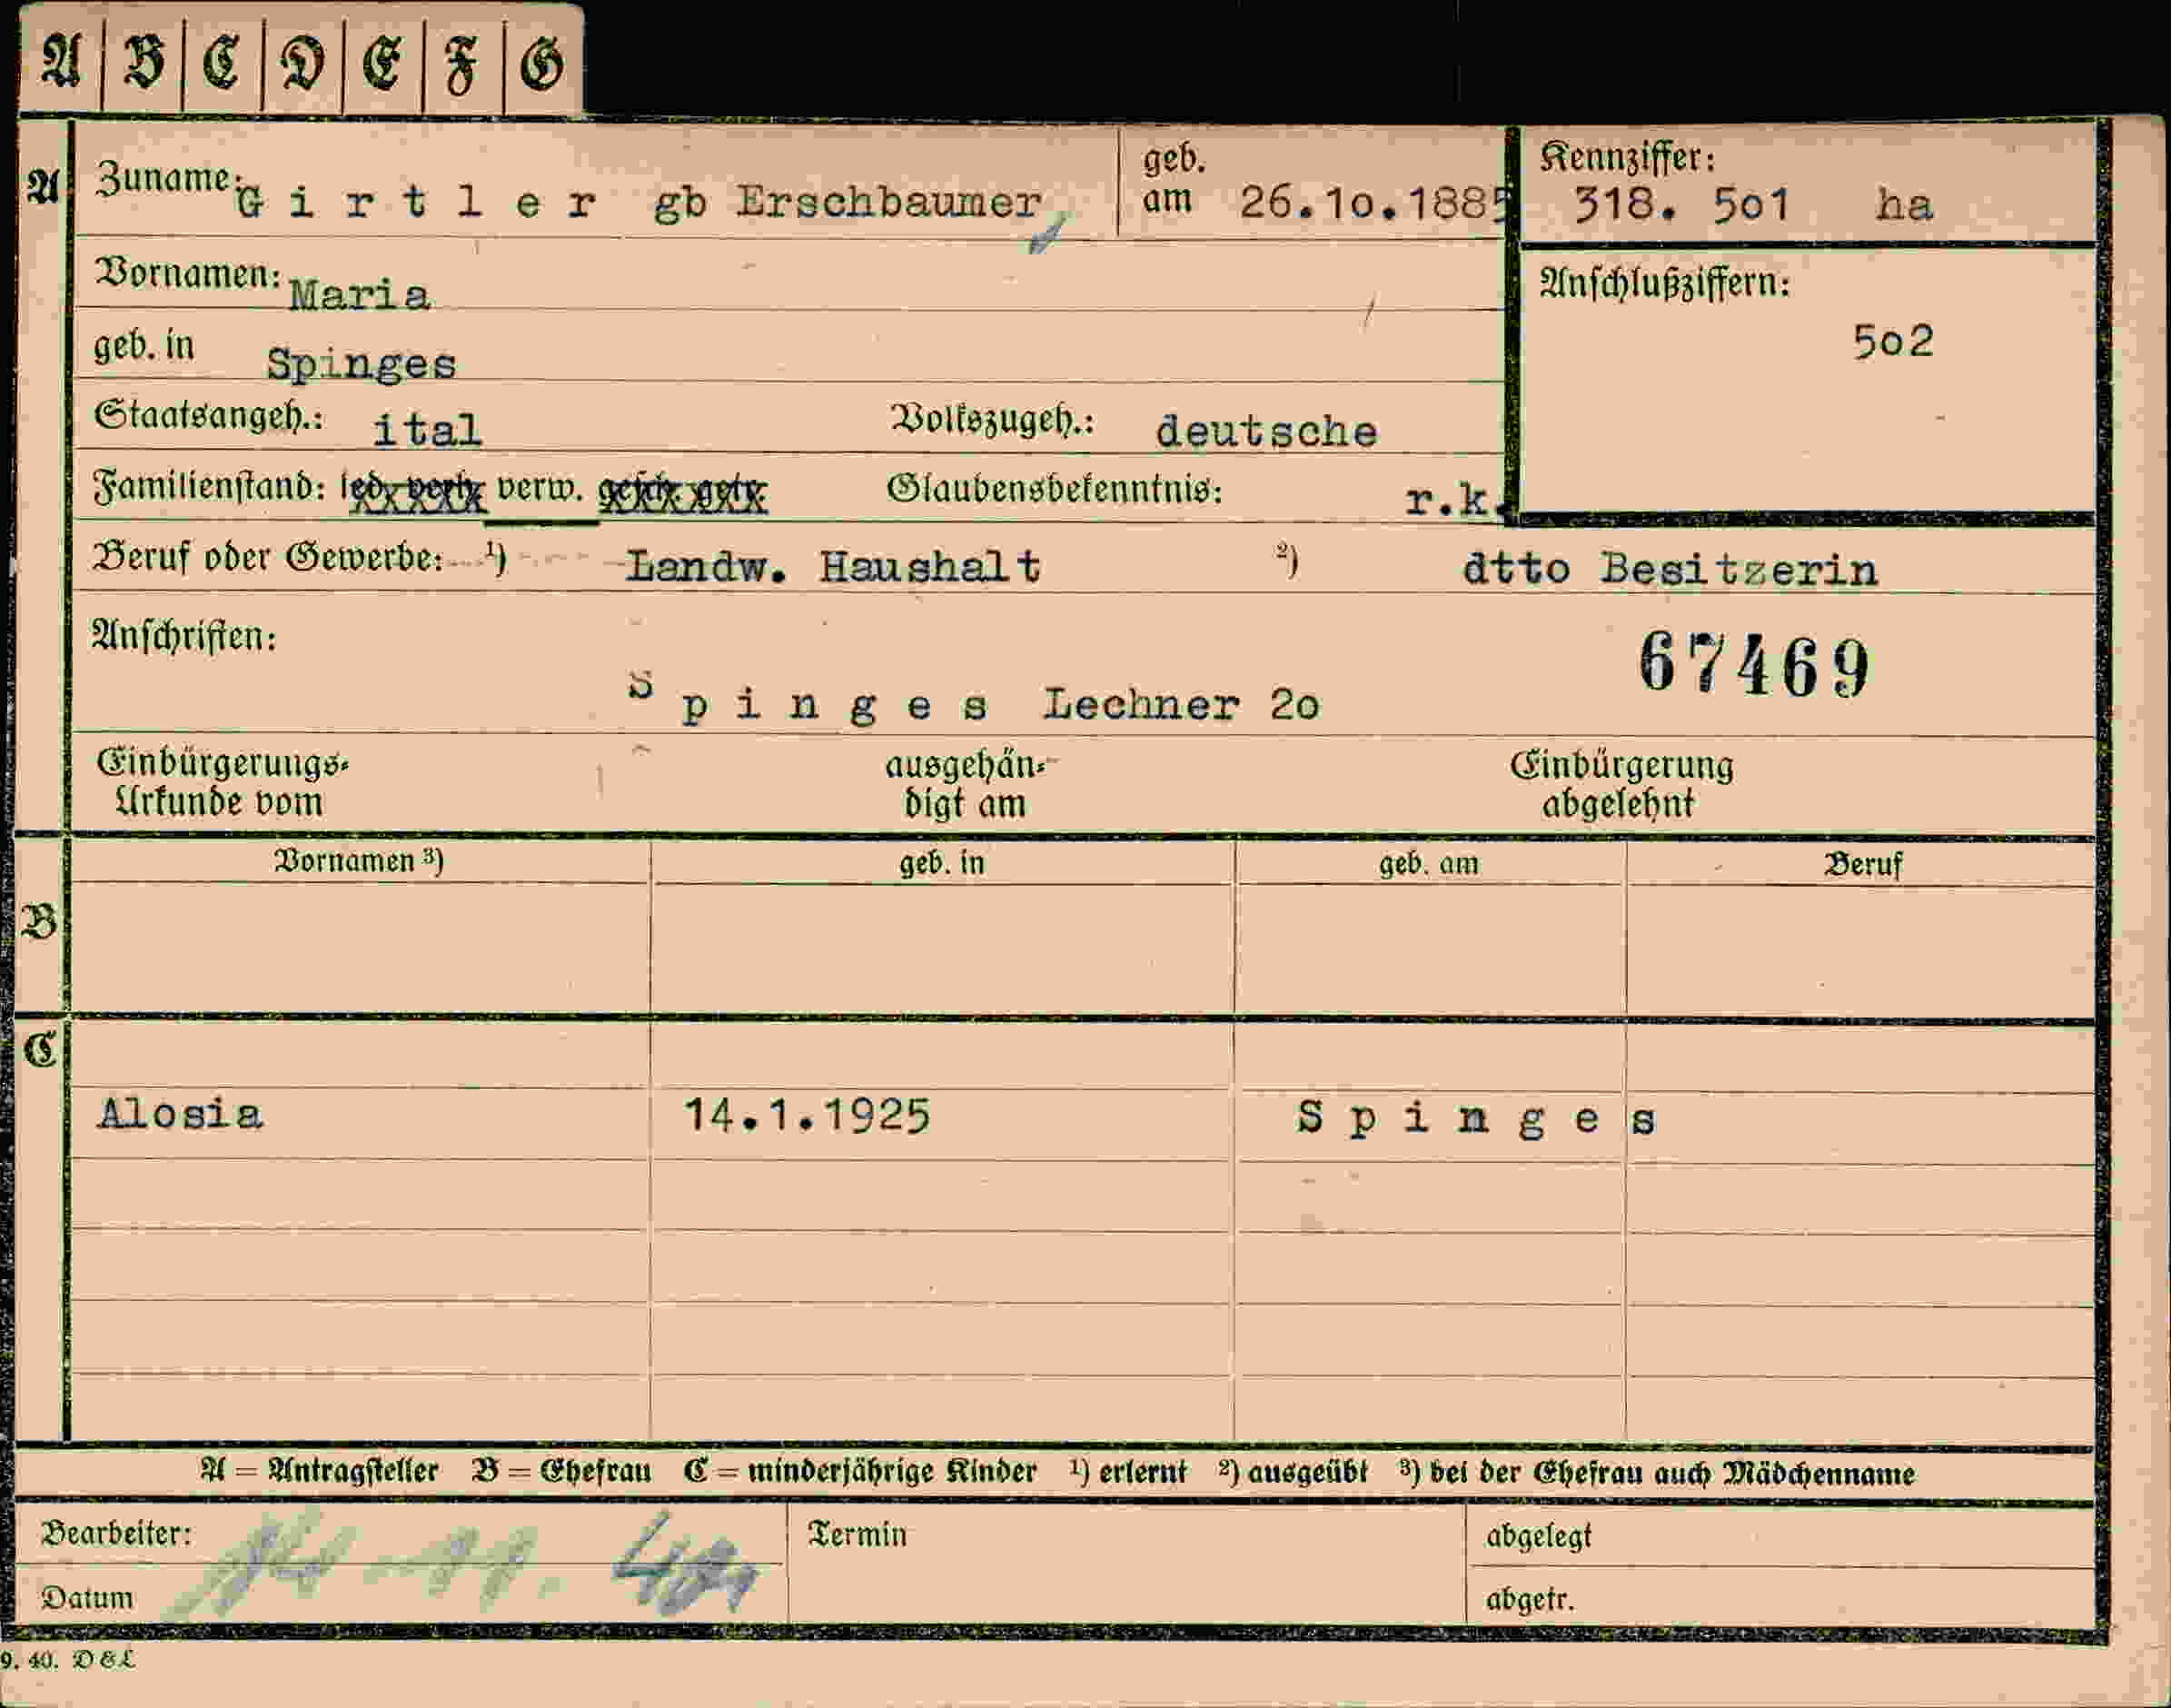 A B C D E F G
A Zuname: G i r t l e r gb Erschbaumer geb. am 26.1o.1885 Kennziffer: 318. 5o1 ha
Vornamen: Maria Anschlußziffern:
5o2
geb. in Spinges
Staatsangeh.: ital Volkszugeh.: deutsche
Familienstand: led. verh. verw. gesch. getr. Glaubensbekenntnis: r.k.
Beruf oder Gewerbe: ¹) Landw. Haushalt ²) dtto Besitzerin
Anschriften: 67469
S p i n g e s Lechner 2o
Einbürgerungs- ausgehän- Einbürgerung
Urkunde vom digt am abgelehnt
Vornamen ³) geb. in geb. am Beruf
B
C
Alosia 14.1.1925 S p i n g e s
A = Antragsteller B = Ehefrau C = minderjährige Kinder ¹) erlernt ²) ausgeübt ³) bei der Ehefrau auch Mädchenname
Bearbeiter: Termin abgelegt
Datum abgetr.
9. 40. D & L